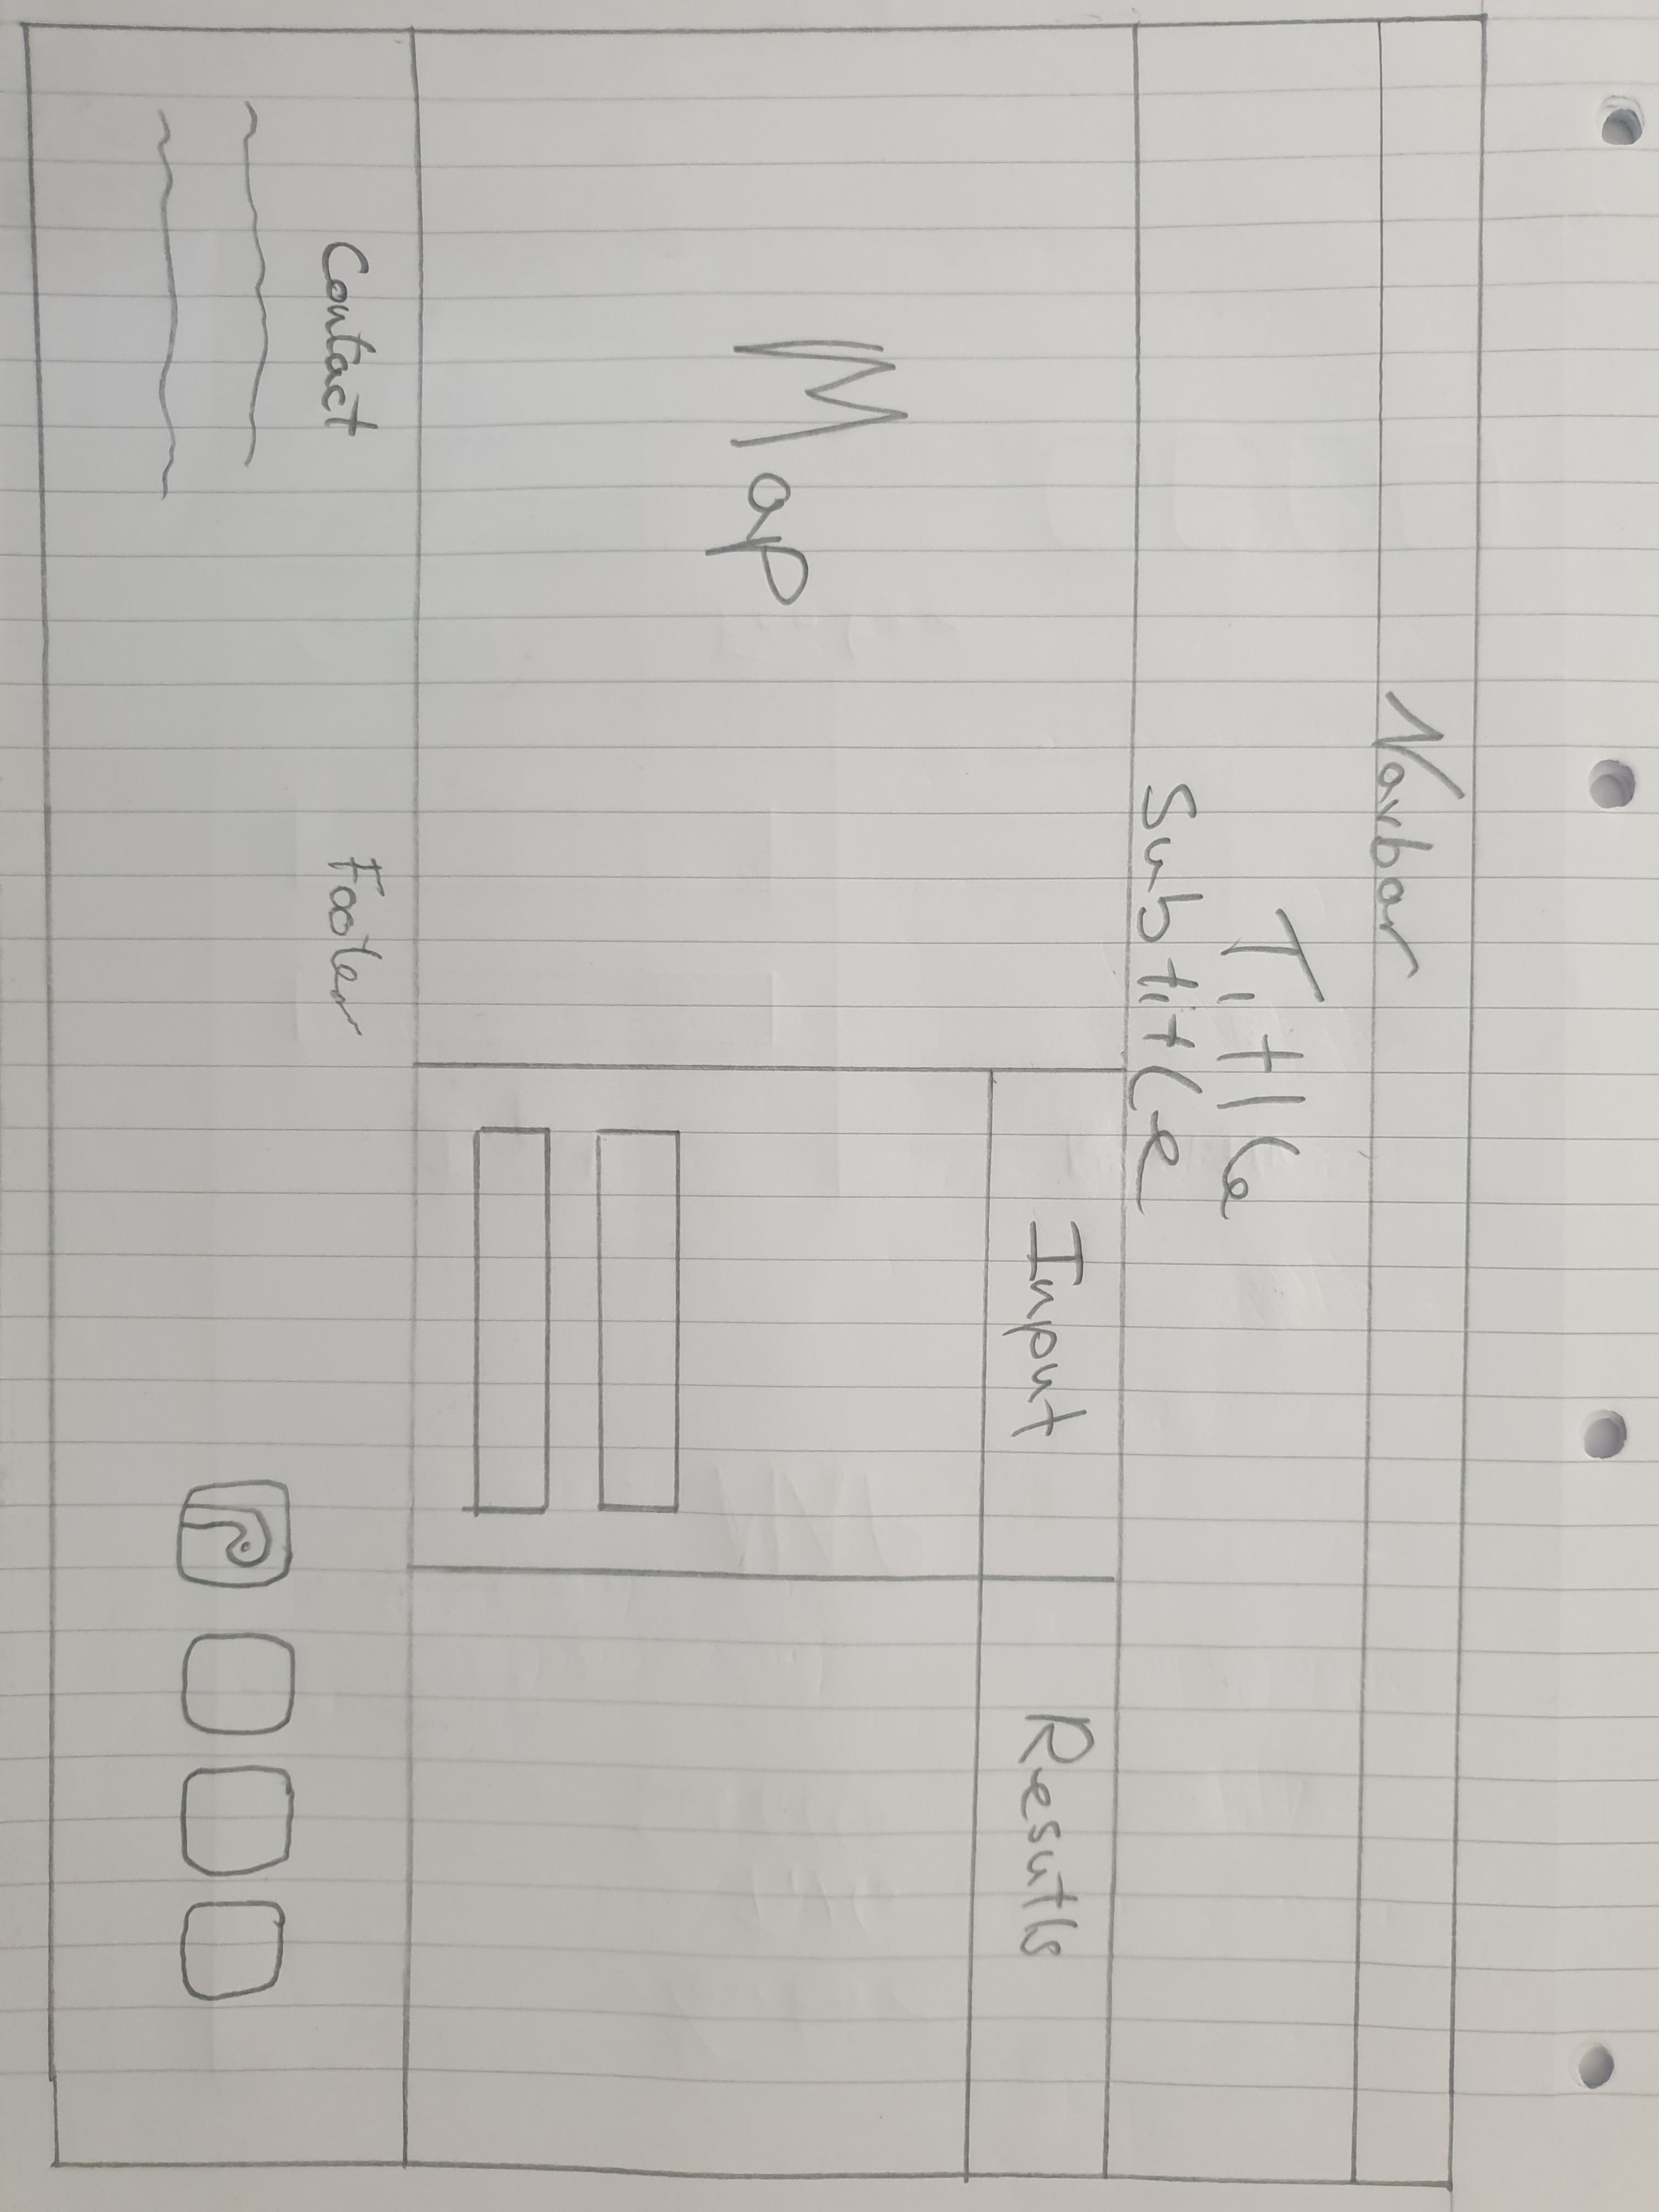 Navbar
Title
Subtitle
Map
Input
Resutls
Contact
Footer